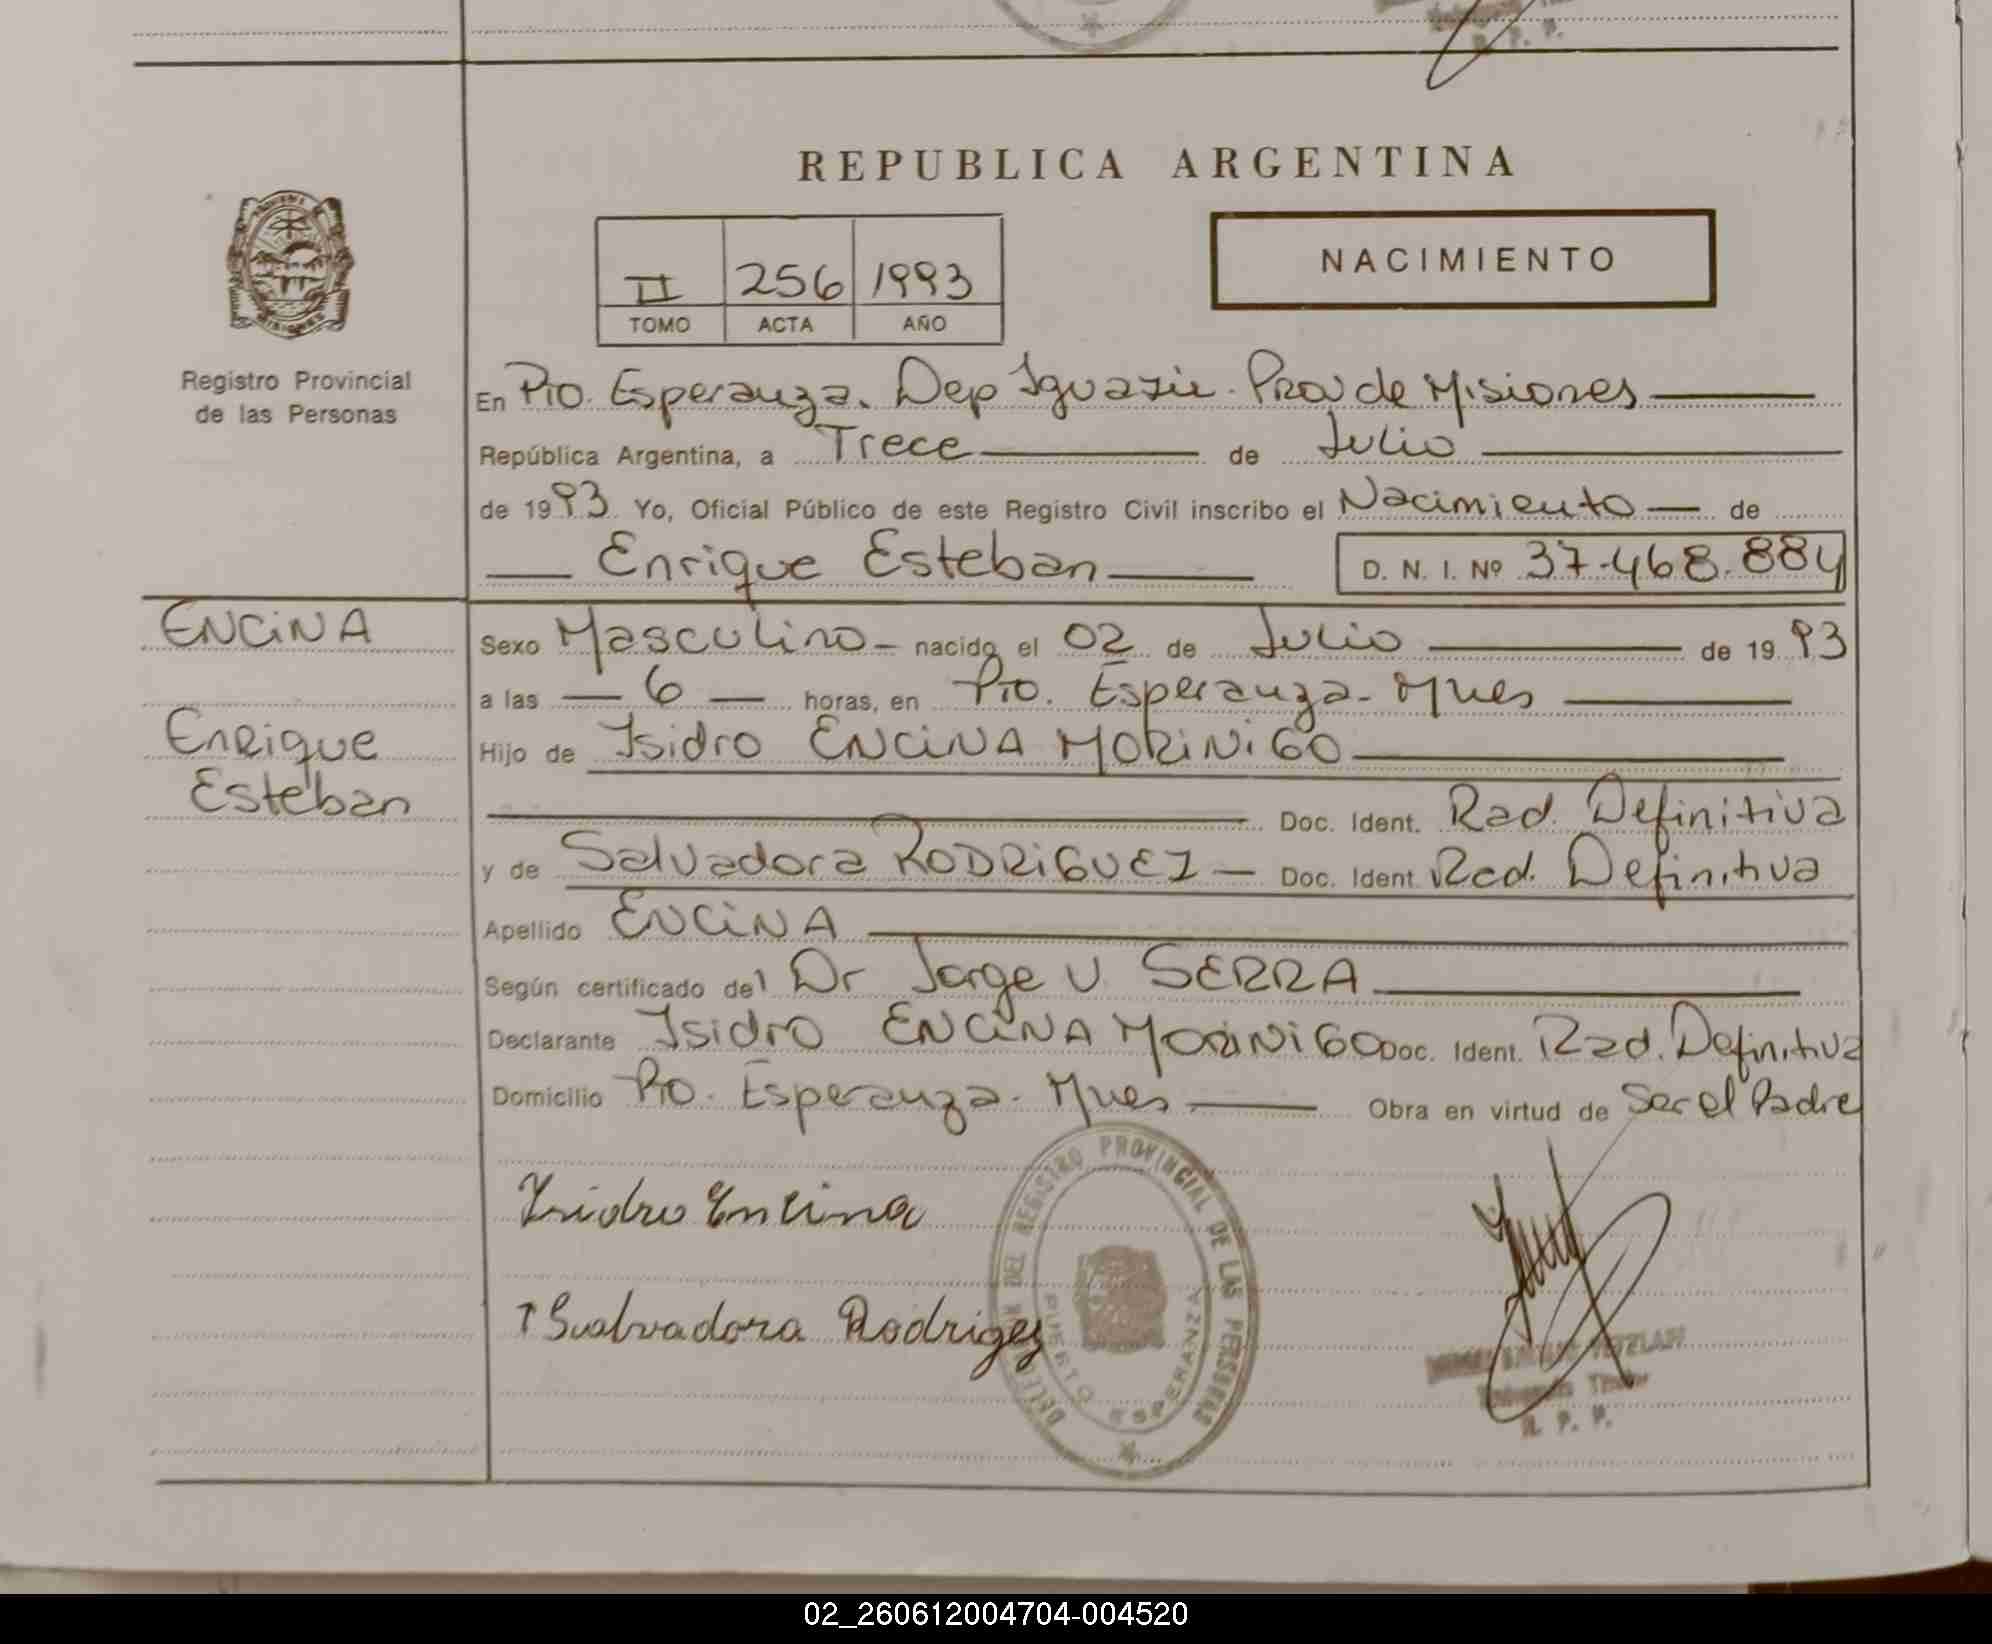 REPUBLICA ARGENTINA
NACIMIENTO
II 256 1993
TOMO ACTA AÑO
Registro Provincial
de las Personas
En Pto. Esperanza. Dep Iguazú. Prov de Misiones
República Argentina, a Trece de Julio
de 1993 Yo, Oficial Público de este Registro Civil inscribo el Nacimiento de
Enrique Esteban D. N. I. Nº 37.468.884
ENCINA
Enrique
Esteban
Sexo Masculino nacido el 02 de Julio de 1993
a las 6 horas, en Pto. Esperanza - Mnes
Hijo de Isidro ENCINA MORINIGO
Doc. Ident. Rad. Definitiva
y de Salvadora RODRIGUEZ Doc. Ident. Rad. Definitiva
Apellido ENCINA
Según certificado del Dr Jorge V. SERRA
Declarante Isidro ENCINA MORINIGO Doc. Ident. Rad. Definitiva
Domicilio Pto. Esperanza - Mnes Obra en virtud de Ser el Padre
Isidro Encina
Salvadora Rodrigez
DEL REGISTRO PROVINCIAL DE LAS PERSONAS
PUERTO ESPERANZA
R. P. P.
02_260612004704-004520